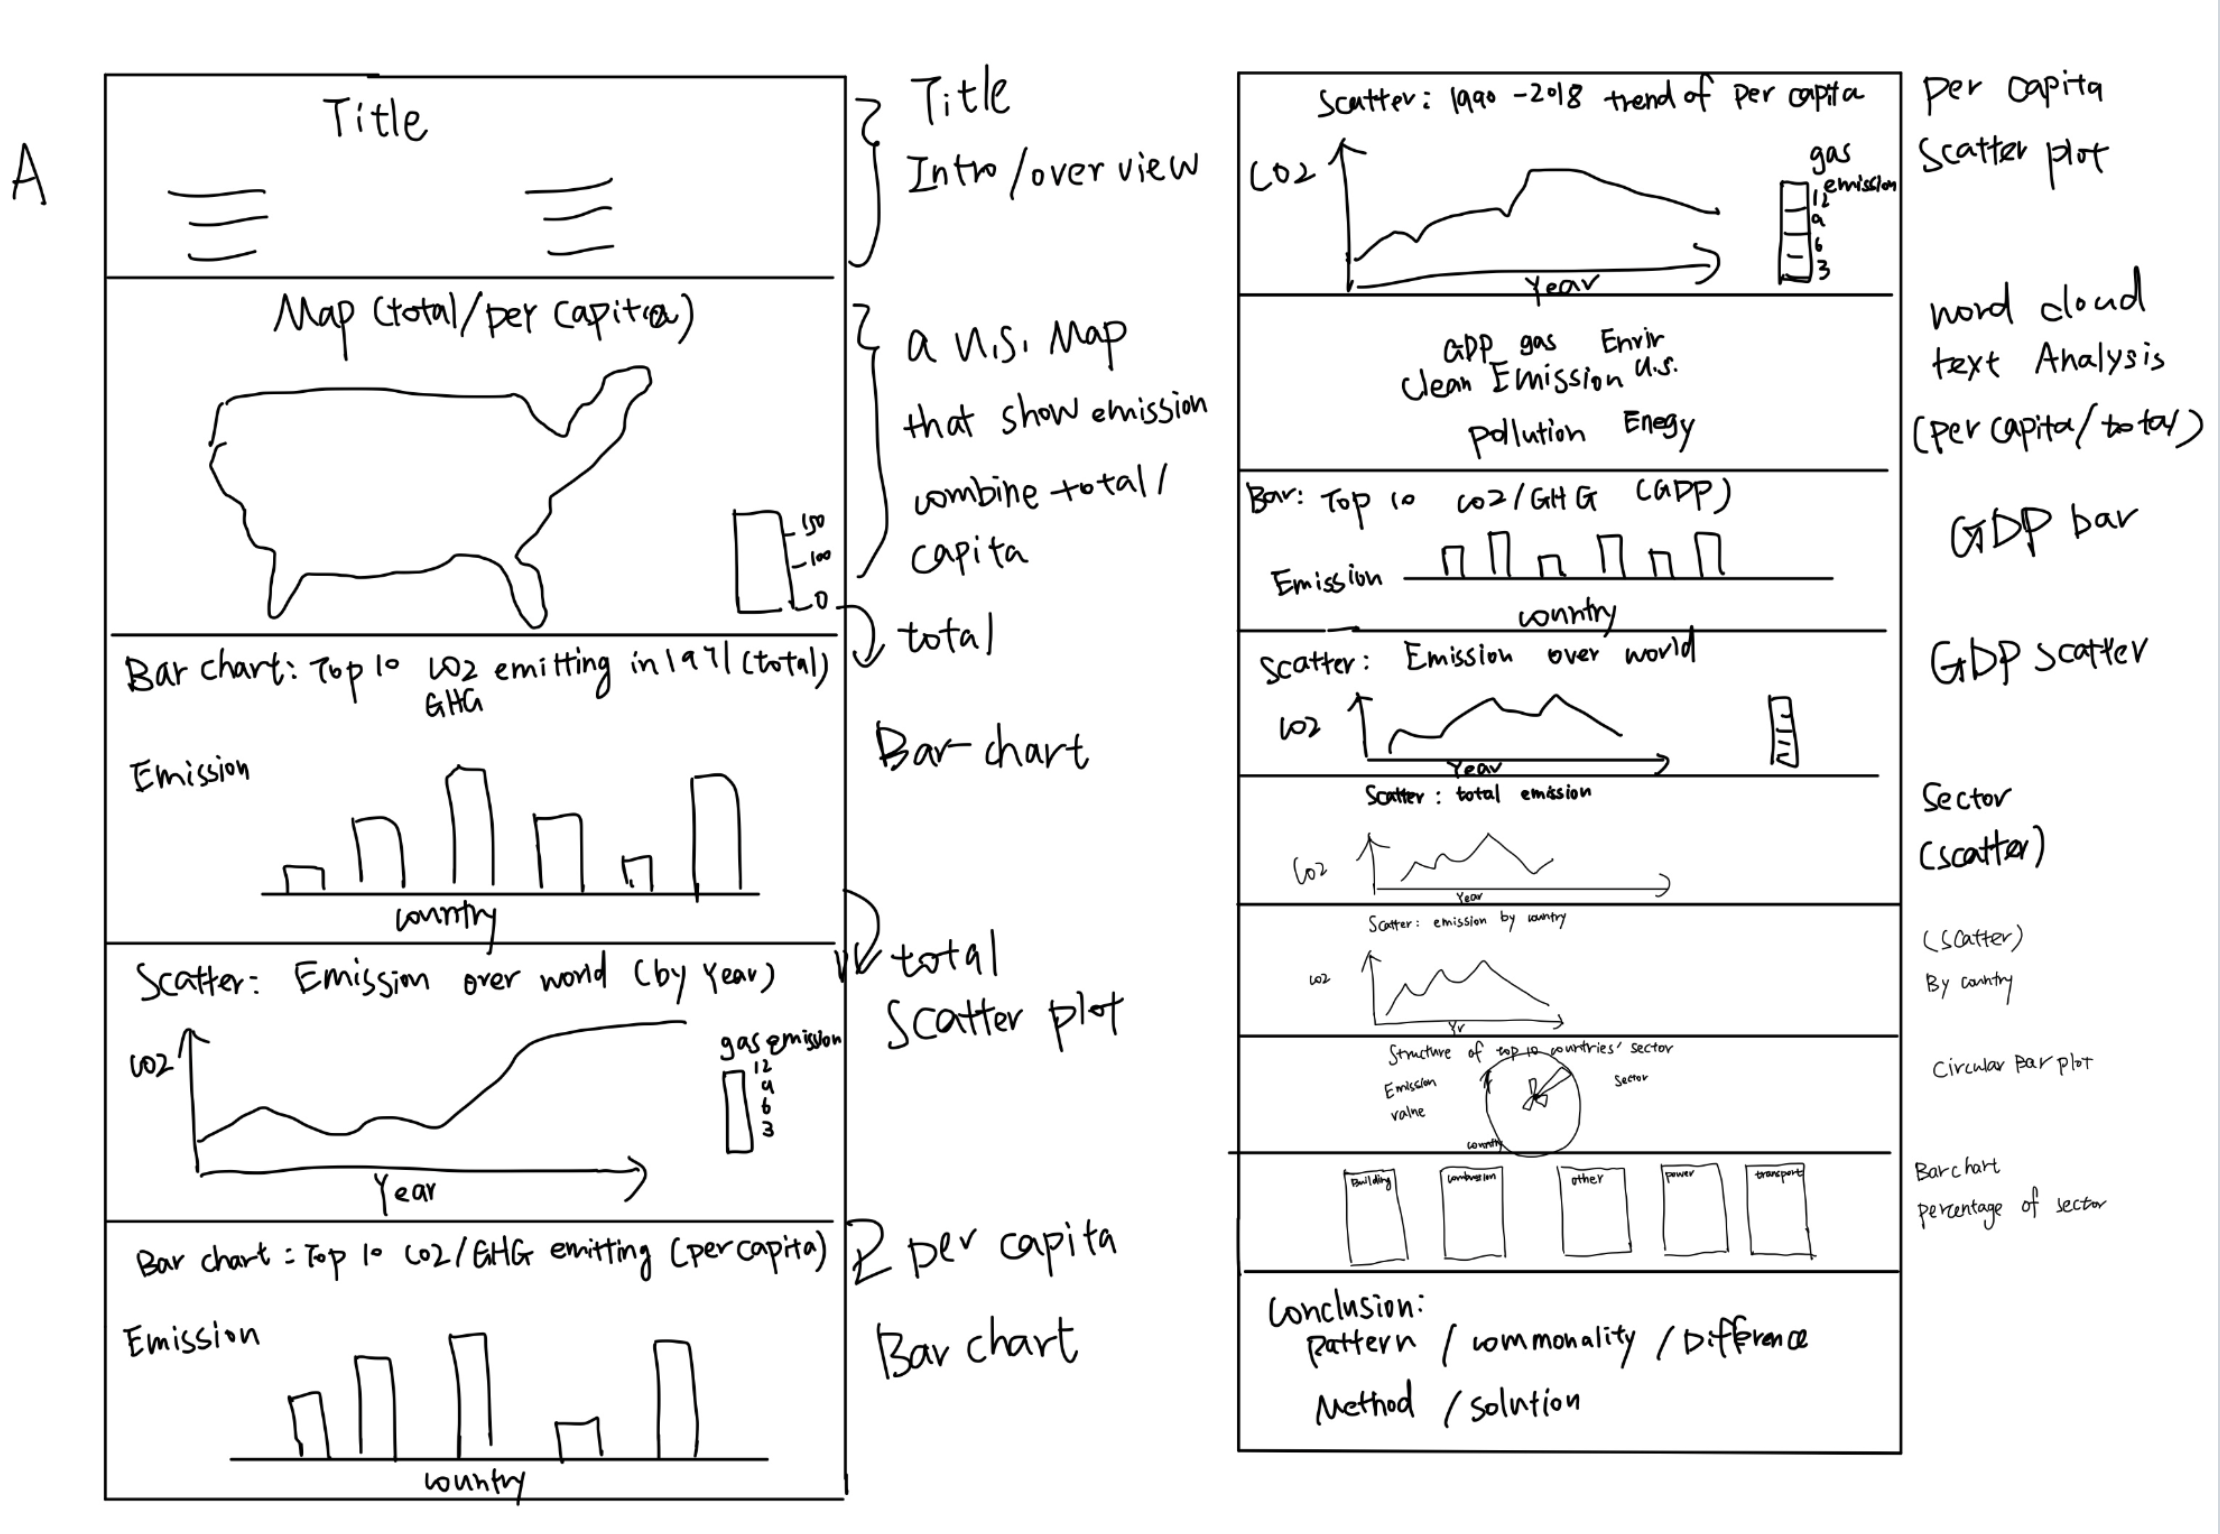 A
Title
Title
Intro/over view
Map (total/per capita)
a U.S. Map
that show emission
combine total/
capita
150
100
0
total
Bar chart: Top 10 CO2 emitting in 1971 (total)
GHG
Bar-chart
Emission
country
total
Scatter plot
Scatter: Emission over world (by Year)
CO2
gas emission
12
9
6
3
Year
Bar chart: Top 10 CO2/GHG emitting (per capita)
per capita
Bar chart
Emission
country
Scatter: 1990-2018 trend of per capita
per capita
Scatter plot
CO2
gas
emission
12
9
6
3
Year
GDP gas Envir
Clean Emission U.S.
pollution Enegy
word cloud
text Analysis
(per capita/total)
Bar: Top 10 CO2/GHG (GDP)
GDP bar
Emission
country
Scatter: Emission over world
GDP scatter
CO2
Year
Scatter: total emission
Sector
(scatter)
CO2
Year
Scatter: emission by country
(scatter)
By country
CO2
Yr
Structure of top 10 countries' sector
Emission
value
Sector
country
Circular Bar plot
Building
combustion
other
power
transport
Bar chart
percentage of sector
Conclusion:
pattern / commonality / Difference
Method / solution